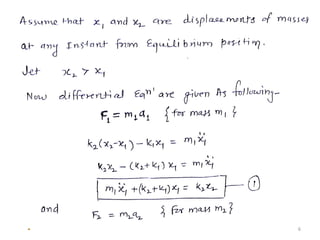 Assume that x₁ and x₂ are displacements of masses
at any Instant from Equilibrium position.
Let x₂ > x₁
Now differential Eqⁿ' are given As following-
F₁ = m₁a₁ { for mass m₁ }
k₂(x₂-x₁) - k₁x₁ = m₁ẍ₁
k₂x₂ - (k₂+k₁) x₁ = m₁ẍ₁
m₁ẍ₁ + (k₂+k₁)x₁ = k₂x₂ ①
and F₂ = m₂a₂ { For mass m₂ }